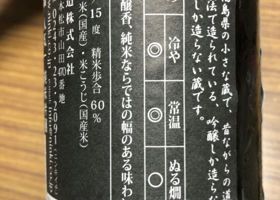 島県の小さな蔵で、昔ながらの道
法で造られている、吟醸しか造らな
しか造らない蔵です。
冷や ◎
常温 ◎
ぬる燗 ○
醸香、純米ならではの幅のある味わ
15度 精米歩合 60%
米(国産)・米こうじ(国産米)
造株式会社
松市山田470番地